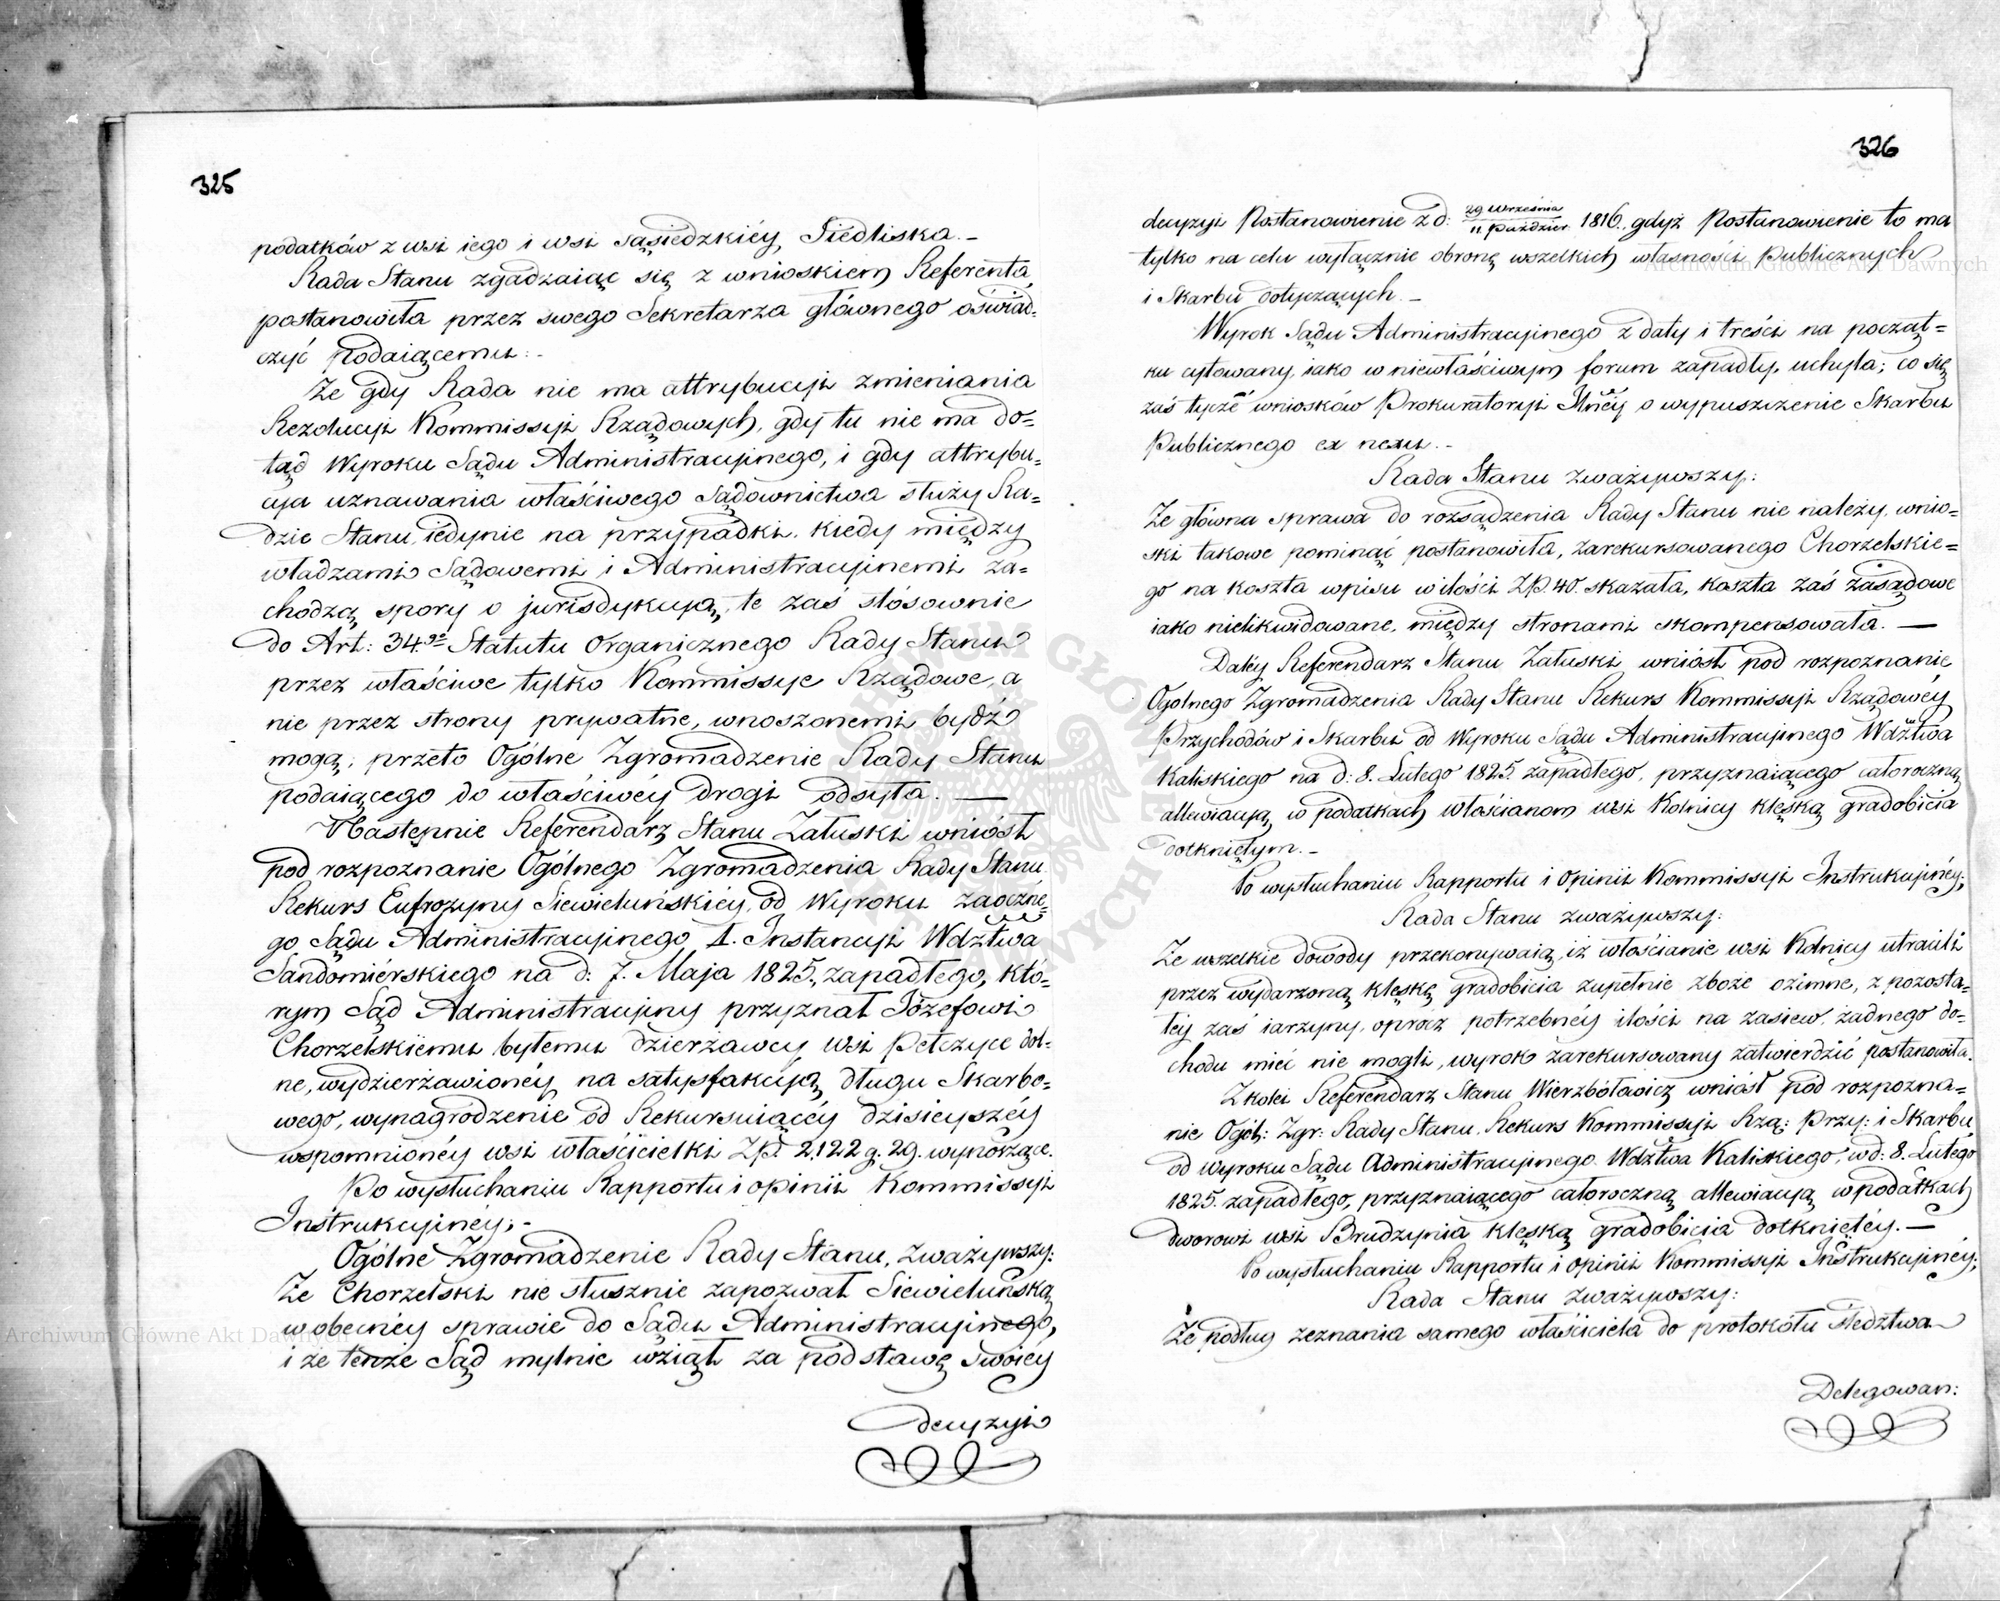 325
podatków z wsi iego i wsi sąsiedzkiéy Siedliska. –
Rada Stanu zgadzaiąc się z wnioskiem Referenta,
postanowiła przez swego Sekretarza głównego oświad-
czyć Podaiącemu: –
Że gdy Rada nie ma attrybucyi zmieniania
Rezolucyi Kommissyi Rządowych, gdy tu nie ma do=
tąd Wyroku Sądu Administracyinego, i gdy attrybu=
cya uznawania właściwego Sądownictwa służy Ra=
dzie Stanu iedynie na przypadki, kiedy między
władzami Sądowemi i Administracyinemi za=
chodzą spory o jurisdykcyą, te zaś stósownie
do Art: 34.go Statutu Organicznego Rady Stanu
przez właściwe tylko Kommissye Rządowe, a
nie przez strony prywatne, wnoszonemi bydź
mogą; przeto Ogólne Zgromadzenie Rady Stanu
podaiącego do właściwéy drogi odsyła. —
Następnie Referendarz Stanu Załuski wniósł
pod rozpoznanie Ogólnego Zgromadzenia Rady Stanu
Rekurs Eufrozyny Siewieluńskiéy, od Wyroku zaoczne=
go Sądu Administracyinego I. Instancyi Wdztwa
Sandomiérskiego na d: 7. Maja 1825. zapadłego, któ=
rym Sąd Administracyiny przyznał Józefowi
Chorzelskiemu byłemu dzierzawcy wsi Pełczyce dol-
ne, wydzierżawionéy na satysfakcyą długu Skarbo=
wego, wynagrodzenie od Rekursuiącéy dzisieyszéy
wspomnionéy wsi właścicielki Zp. 2,122 g. 29. wynoszące.
Po wysłuchaniu Rapportu i opinii Kommissyi
Instrukcyinéy; –
Ogólne Zgromadzenie Rady Stanu, zważywszy:
Że Chorzelski nie słusznie zapozwał Siewieluńską
w obecnéy sprawie do Sądu Administracyinego,
i że tenże Sąd mylnie wziął za podstawę swoiéy
decyzyi
326
decyzyi Postanowienie z d: 29 Września / 11 Paździer. 1816., gdyż Postanowienie to ma
tylko na celu wyłącznie obronę wszelkich własności Publicznych
i Skarbu dotyczących. –
Wyrok Sądu Administracyinego z daty i treści na począt=
ku cytowany, iako w niewłaściwym forum zapadły, uchyla; co się
zaś tycze wniosków Prokuratoryi Jłnéy o wypuszczenie Skarbu
Publicznego ex nexu. –
Rada Stanu zważywszy:
Że główna sprawa do rozsądzenia Rady Stanu nie należy, wnio=
ski takowe pominąć postanowiła, zarekursowanego Chorzelskie=
go na koszta wpisu w ilości Zp. 40. skazała, koszta zaś zasądowe
iako nielikwidowane, między stronami skompensowała. —
Daléy Referendarz Stanu Załuski wniósł pod rozpoznanie
Ogolnego Zgromadzenia Rady Stanu Rekurs Kommissyi Rządowéy
Przychodów i Skarbu od Wyroku Sądu Administracyinego Wdztwa
Kaliskiego na d: 8. Lutego 1825. zapadłego, przyznaiącego całoroczną
allewiacyą w podatkach włościanom wsi Kolnicy klęską gradobicia
dotkniętym. –
Po wysłuchaniu Rapportu i opinii Kommissyi Instrukcyinéy;
Rada Stanu zważywszy:
Że wszelkie dowody przekonywaią, iż włościanie wsi Kolnicy utracili
przez wydarzoną klęskę gradobicia zupełnie zboże ozimne, z pozosta=
łéy zaś iarzyny, oprócz potrzebnéy ilości na zasiew, żadnego do=
chodu mieć nie mogli, wyrok zarekursowany zatwierdzić postanowiła.
Z kolei Referendarz Stanu Wierzbołowicz wniósł pod rozpozna=
nie Ogól: Zgr: Rady Stanu, Rekurs Kommissyi Rzą: Przy: i Skarbu
od wyroku Sądu Administracyinego Wdztwa Kaliskiego, w d: 8. Lutego
1825. zapadłego, przyznaiącego całoroczną allewiacyą w podatkach
dworowi wsi Brudzynia klęską gradobicia dotkniętéy. —
Po wysłuchaniu Rapportu i opinii Kommissyi Instrukcyinéy;
Rada Stanu zważywszy:
Że podług zeznania samego właściciela do protokółu śledztwa
Delegowan:
Archiwum Główne Akt Dawnych
Archiwum Główne Akt Dawnych